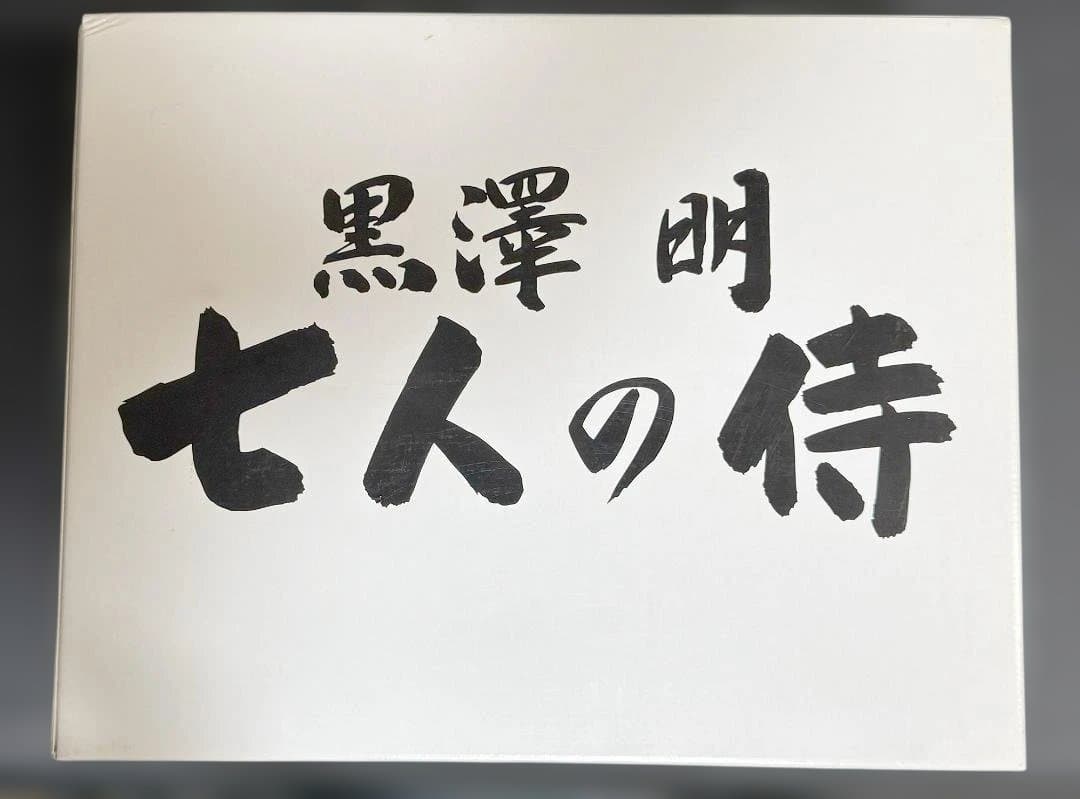 黒澤 明
七人の侍